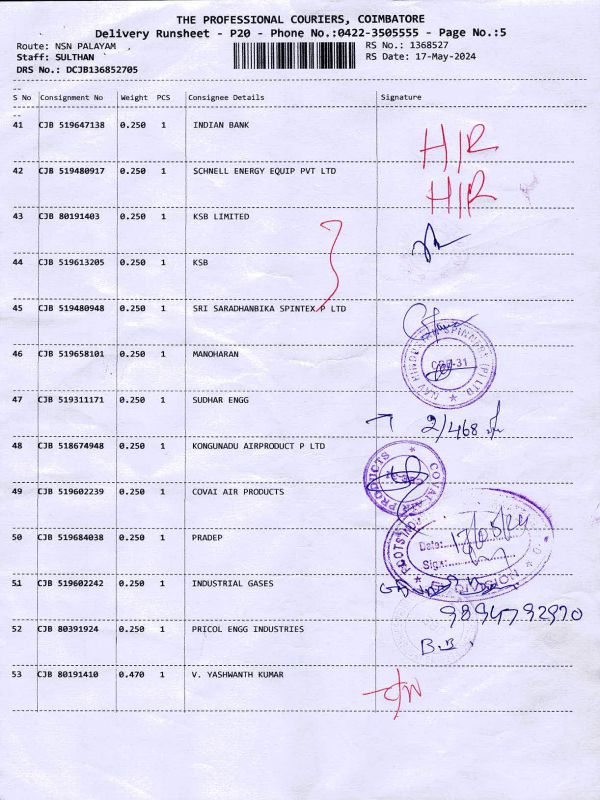 THE PROFESSIONAL COURIERS, COIMBATORE
Delivery Runsheet - P20 - Phone No.:0422-3505555 - Page No.:5
Route: NSN PALAYAM ,
RS No.: 1368527
Staff: SULTHAN
RS Date: 17-May-2024
DRS No.: DCJB136852705
S No Consignment No Weight PCS Consignee Details Signature
41 CJB 519647138 0.250 1 INDIAN BANK
H/R
42 CJB 519480917 0.250 1 SCHNELL ENERGY EQUIP PVT LTD
H/R
43 CJB 80191403 0.250 1 KSB LIMITED
44 CJB 519613205 0.250 1 KSB
45 CJB 519480948 0.250 1 SRI SARADHANBIKA SPINTEX P LTD
46 CJB 519658101 0.250 1 MANOHARAN
47 CJB 519311171 0.250 1 SUDHAR ENGG
2/468
48 CJB 518674948 0.250 1 KONGUNADU AIRPRODUCT P LTD
COVAI AIR PRODUCTS
49 CJB 519602239 0.250 1 COVAI AIR PRODUCTS
50 CJB 519684038 0.250 1 PRADEP
Date: 17/05/24
Sign:
51 CJB 519602242 0.250 1 INDUSTRIAL GASES
9894792970
52 CJB 80391924 0.250 1 PRICOL ENGG INDUSTRIES
B.B
53 CJB 80191410 0.470 1 V. YASHWANTH KUMAR